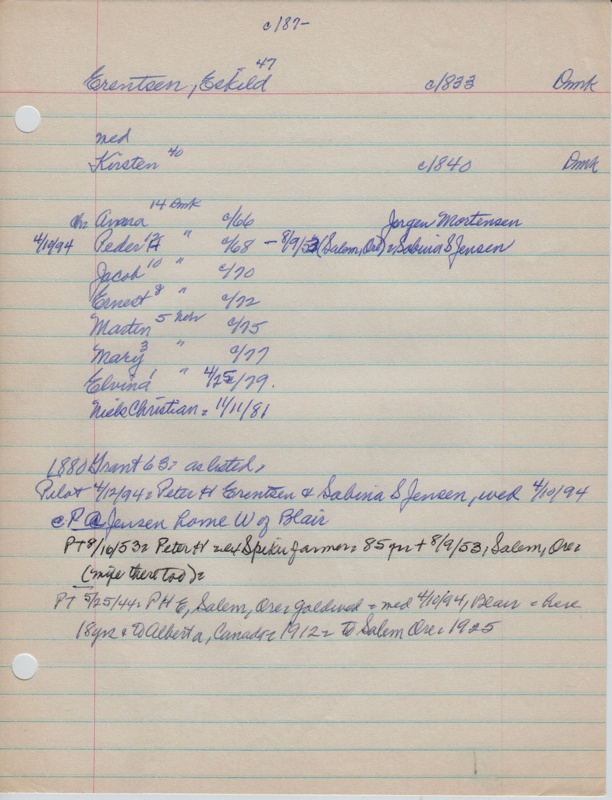 c/187-
Erentsen, Eskild 47 c/833 Dmk
med
Kirsten 40 c/840 Dmk
ch Anna 14 Dmk c/66 Jorgen Mortensen
4/10/94 Peder H 12 " c/68 - 8/9/53 (Salem, Ore) = Sabina S Jensen
Jacob 10 " c/70
Ernest 8 " c/72
Martin 5 Nebr c/75
Mary 3 " c/77
Elvina 1 " 4/25/79.
Niels Christian = 11/11/81
1880 Grant 63: as listed,
Pilot 4/12/94: Peter H Erentsen & Sabina S Jensen, wed 4/10/94
c P Jensen home W of Blair
PT 8/10/53: Peter H = ex Spiker farmer = 85 yrs + 8/9/53, Salem, Ore=
(mije there too)=
PT 5/25/44: P H E, Salem, Ore= goldwed = med 4/10/94, Blair = here
18 yrs & to Alberta, Canada = 1912 = to Salem Ore= 1925